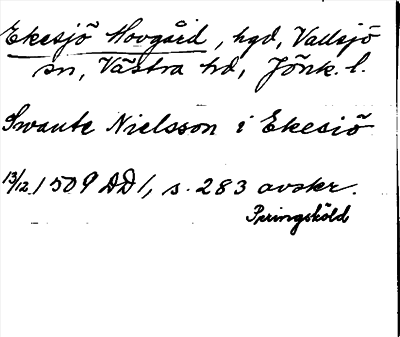 Ekesjö Hovgård, hgd, Vallsjö
sn, Västra hd, Jönk. l.
Swante Nielsson i Ekesiö
13/12 1509 DD 1, s. 283 avskr.
Peringsköld